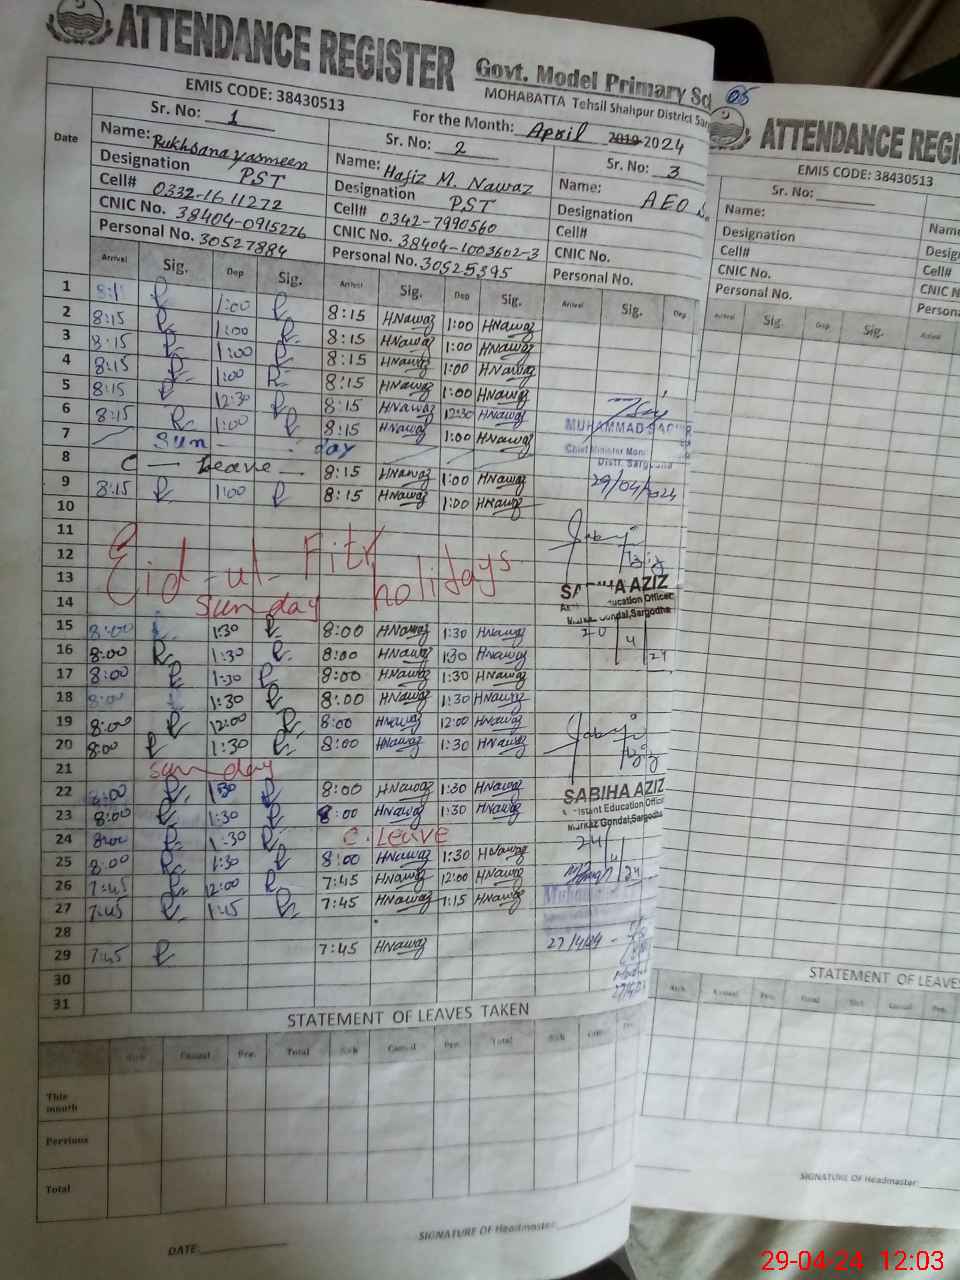 ATTENDANCE REGISTER
Govt. Model Primary Sc
EMIS CODE: 38430513
MOHABATTA Tehsil Shahpur District Sar
For the Month: April 2019 2024
Date
Sr. No: 1
Sr. No: 2
Sr. No: 3
Name: Rukhsana yasmeen
Name: Hafiz M. Nawaz
Name: AEO
Designation PST
Designation PST
Designation
Cell# 0332-1611272
Cell# 0342-7990560
Cell#
CNIC No. 38404-0915276
CNIC No. 38404-1003602-3
CNIC No.
Personal No. 30527884
Personal No. 30525395
Personal No.
Arrival Sig. Dep Sig. Arrival Sig. Dep Sig. Arrival Sig. Dep
1 1:00 8:15 HNawaz 1:00 HNawaz
2 8:15 1:00 8:15 HNawaz 1:00 HNawaz
3 8:15 1:00 8:15 HNawaz 1:00 HNawaz
4 8:15 1:00 8:15 HNawaz 1:00 HNawaz
5 8:15 12:30 8:15 HNawaz 12:30 HNawaz
6 8:15 1:00 8:15 HNawaz 1:00 HNawaz
7 Sun - day
8 C - Leave - 8:15 HNawaz 1:00 HNawaz
9 8:15 1:00 8:15 HNawaz 1:00 HNawaz
10
11
12 Eid-ul-Fitr holidays
13
14 Sunday
15 8:00 1:30 8:00 HNawaz 1:30 HNawaz
16 8:00 1:30 8:00 HNawaz 130 HNawaz
17 8:00 1:30 8:00 HNawaz 1:30 HNawaz
18 8:00 1:30 8:00 HNawaz 1:30 HNawaz
19 8:00 12:00 8:00 HNawaz 12:00 HNawaz
20 8:00 1:30 8:00 HNawaz 1:30 HNawaz
21 Sunday
22 8:00 130 8:00 HNawaz 1:30 HNawaz
23 8:00 1:30 8:00 HNawaz 1:30 HNawaz
24 8:00 1:30 C. Leave
25 8:00 1:30 8:00 HNawaz 1:30 HNawaz
26 7:45 12:00 7:45 HNawaz 12:00 HNawaz
27 7:45 1:45 7:45 HNawaz 1:15 HNawaz
28
29 7:45 7:45 HNawaz
30
31
MUHAMMAD
Chief Minister
Distt. Sargodha
29/04/2024
SABIHA AZIZ
ucation Officer
Gondal, Sargodha
20 4 24
SABIHA AZIZ
istant Education Officer
Markaz Gondal, Sargodha
24
STATEMENT OF LEAVES TAKEN
Sick Casual Prv. Total Sick Casual Prv. Total Sick
This month
Pervious
Total
DATE:
SIGNATURE OF Headmaster:
05
ATTENDANCE REGI
EMIS CODE: 38430513
Sr. No:
Name:
Name
Designation
Desig
Cell#
Cell#
CNIC No.
CNIC N
Personal No.
Persona
Arrival Sig. Dep Sig. Arrival
STATEMENT OF LEAVES
SIGNATURE OF Headmaster:
29-04-24 12:03